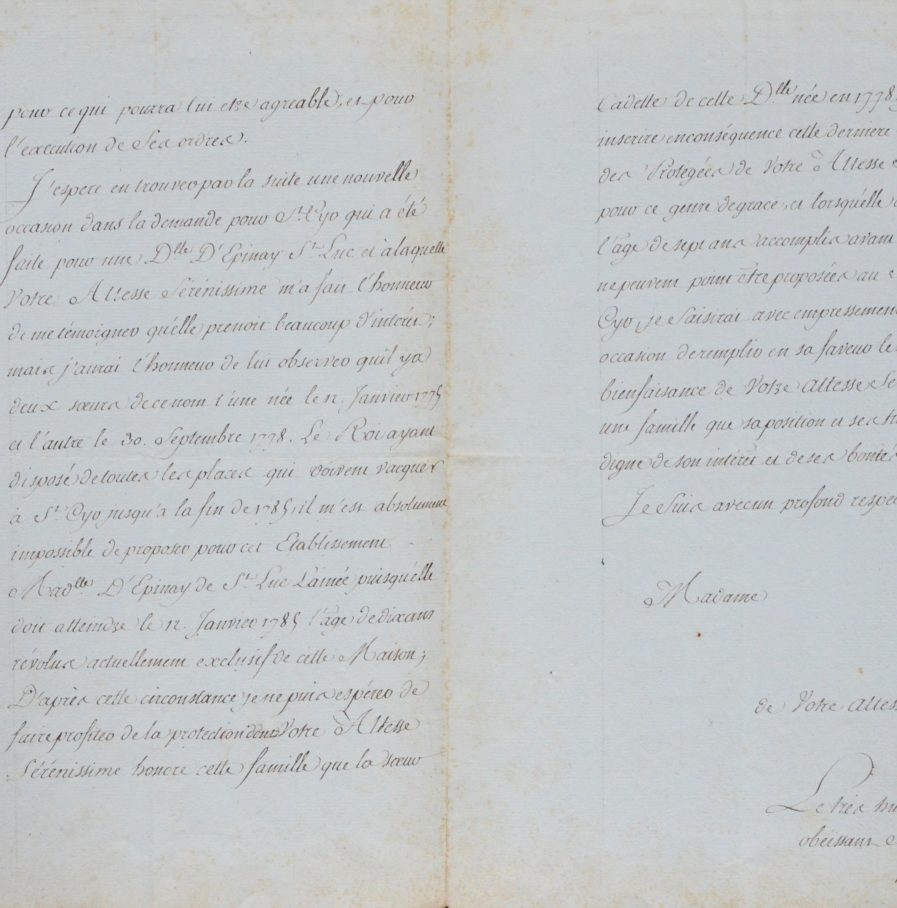 pour ce qui pourra lui etre agreable, et pour
l'execution de Ses ordres.
J'espere en trouver par la suite une nouvelle
occasion dans la demande pour St. Cyr qui a été
faite pour une Dlle D'Epinay St. Luc et à laquelle
Votre Altesse Sérénissime m'a fait l'honneur
de me témoigner qu'elle prenoit beaucoup d'intérêt;
mais j'aurai l'honneur de lui observer qu'il y a
deux sœurs de ce nom l'une née le 12. Janvier 1775
et l'autre le 30. Septembre 1778. Le Roi ayant
disposé de toutes les places qui doivent vacquer
à St. Cyr jusqu'à la fin de 1785, il m'est absolument
impossible de proposer pour cet Etablissement
Madlle D'Epinay de St. Luc L'ainée puisqu'elle
doit atteindre le 12. Janvier 1785 l'âge de dix ans
révolus actuellement exclusif de cette Maison;
D'après cette circonstance je ne puis espérer de
faire profiter de la protection dont Votre Altesse
Sérénissime honore cette famille que la sœur
Cadette de celle Dlle née en 1778,
inscrire en conséquence cette derniere
des Protégées de Votre Altesse
pour ce genre de grace, et lorsqu'elle
l'âge de sept ans accomplis avant
ne peuvent point être proposées au
Cyr, je Saisirai avec empressemen
occasion de remplir en sa faveur le
bienfaisance de Votre Altesse Sé
une famille que sa position et ses
digne de son intérêt et de ses bontés
Je Suis avec un profond respe
Madame
de Votre Altes
Le très hu
obéissant